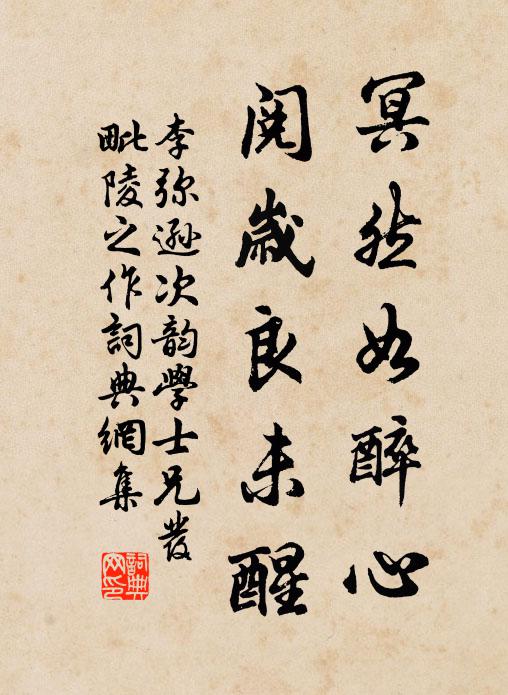 冥然如醉心
閱歲良未醒
李弥遜次韵學士兄發
毗陵之作詞典網集
詞典
网印